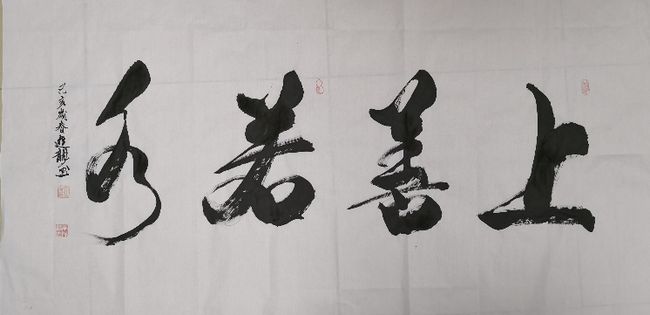 上善若水
己亥岁春进龙书